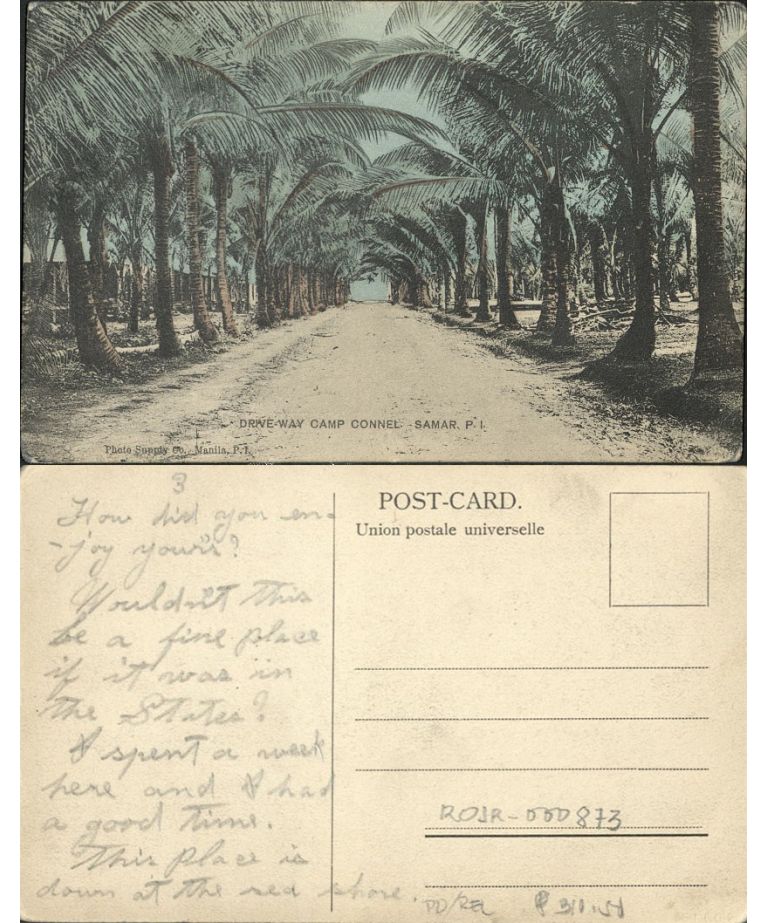 DRIVE-WAY CAMP CONNEL - SAMAR, P. I.
Photo Supply Co. Manila, P. I.
3
How did you en-
-joy yours?
Wouldn't this
be a fine place
if it was in
the States?
I spent a week
here and I had
a good time.
This place is
down at the sea shore.
POST-CARD.
Union postale universelle
ROJR-000873